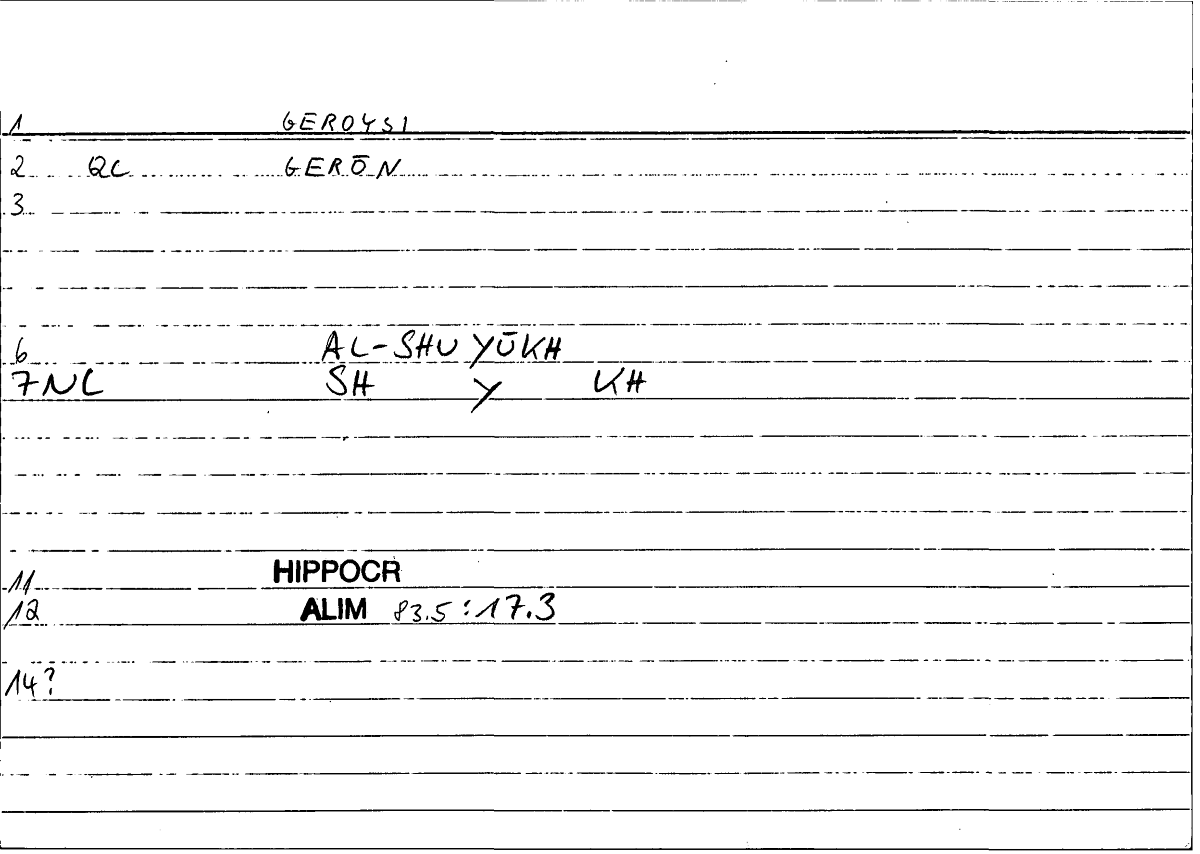 1 GEROYSI
2 QC GERŌN
3
6 AL-SHUYŪKH
7 NC SH Y KH
11 HIPPOCR
12 ALIM 83.5:17.3
14?